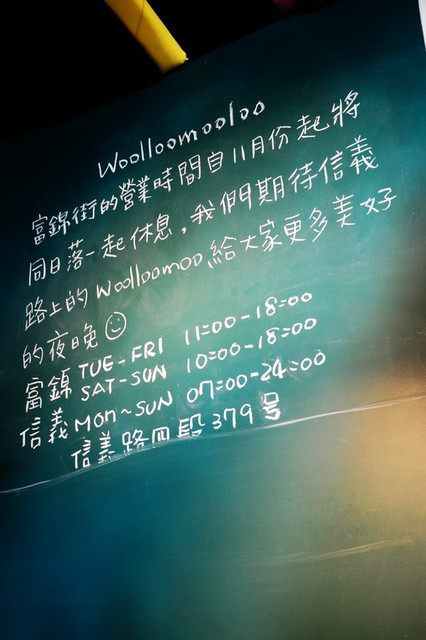 Woolloomooloo
富錦街的營業時間自11月份起將
同日落一起休息，我們期待信義
路上的Woolloomoo給大家更多美好
的夜晚☺
富錦 TUE-FRI 11:00-18:00
SAT-SUN 10:00-18:00
信義 MON~SUN 07:00-24:00
信義路四段379號